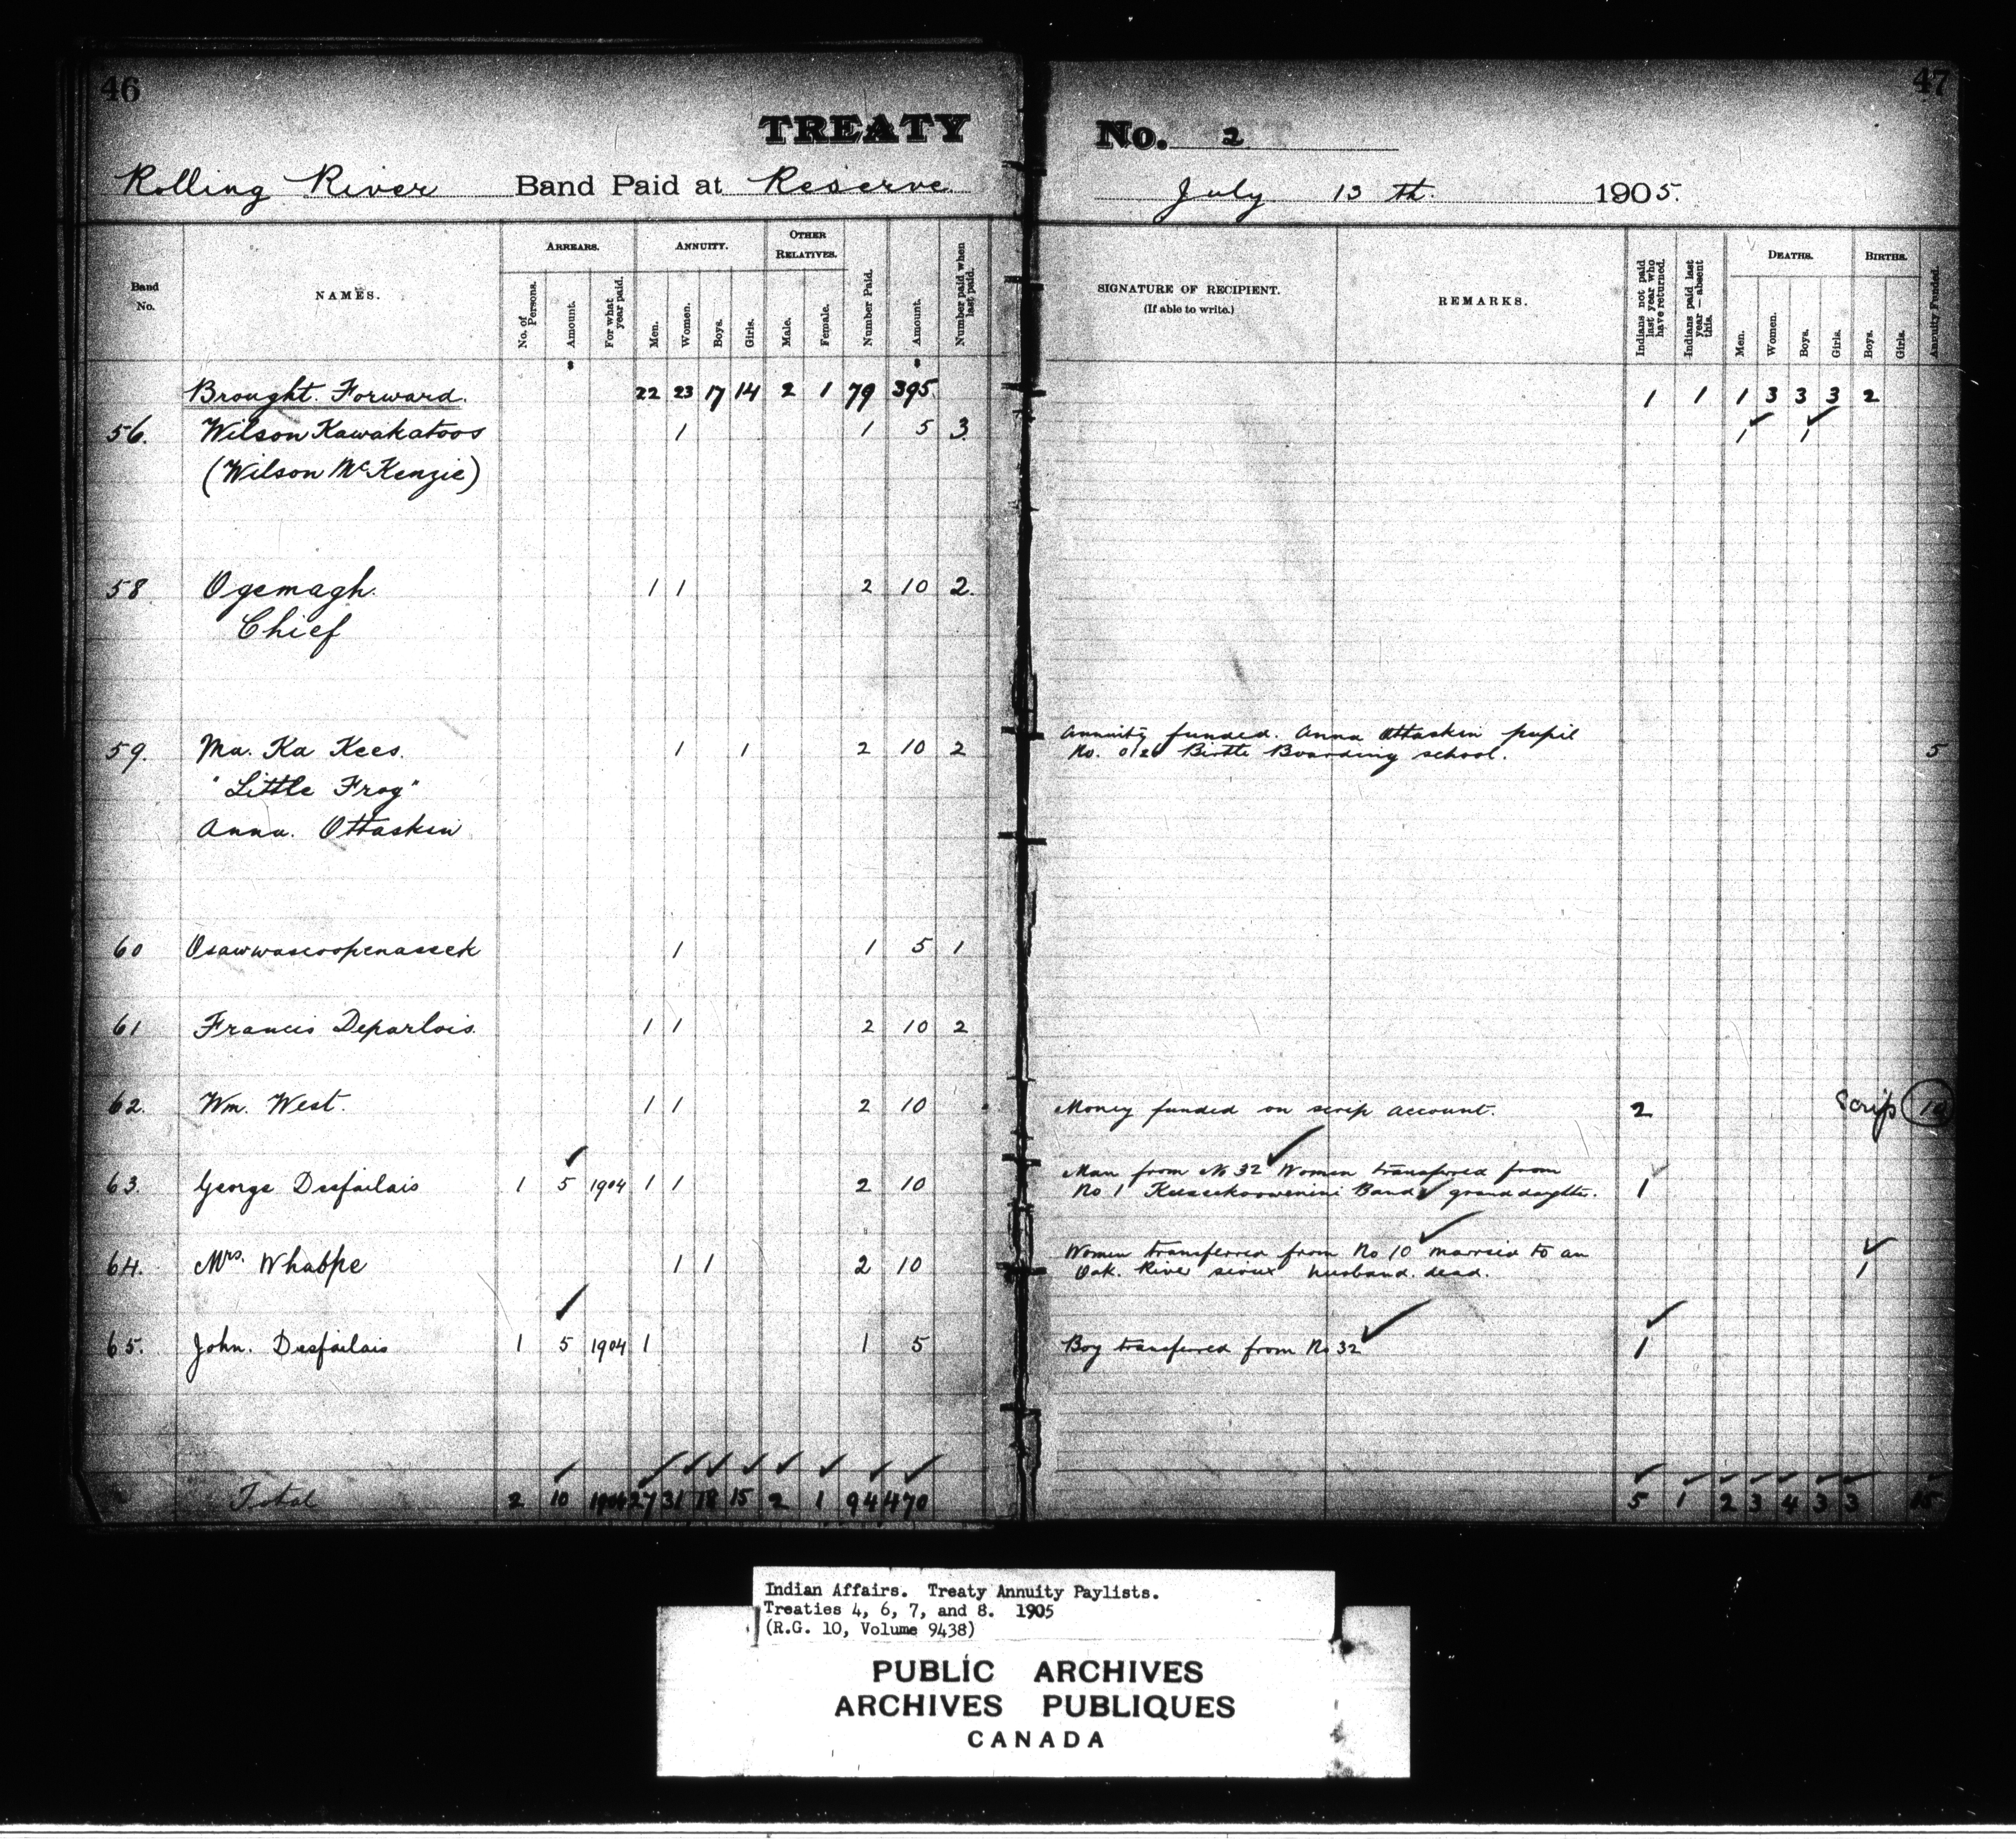 46
TREATY
Rolling River Band Paid at Reserve
Band No.
NAMES.
ARREARS.
No. of Persons.
Amount.
For what year paid.
ANNUITY.
Men.
Women.
Boys.
Girls.
OTHER RELATIVES.
Male.
Female.
Number Paid.
Amount.
Number paid when last paid.
Brought Forward. 22 23 17 14 2 1 79 395
56. Wilson Kawakatoos 1 1 5 3
(Wilson McKenzie)
58 Ogemagh. 1 1 2 10 2.
Chief
59. Ma. Ka Kees. 1 1 2 10 2
"Little Frog"
Anna. Ottaskin
60 Osawwascoopenassek 1 1 5 1
61 Francis Deparlois. 1 1 2 10 2
62. Wm. West. 1 1 2 10
63. George Desfailais 1 5 1904 1 1 2 10
64. Mrs. Whabpe 1 1 2 10
65. John. Desfailais 1 5 1904 1 1 5
Total 2 10 1904 27 31 18 15 2 1 94 470
47
No. 2
July 13 th. 1905.
SIGNATURE OF RECIPIENT.
(If able to write.)
REMARKS.
Indians not paid last year who have returned.
Indians paid last year — absent this.
DEATHS.
Men.
Women.
Boys.
Girls.
BIRTHS.
Boys.
Girls.
Annuity Funded.
1 1 1 3 3 3 2
1 1
Annuity funded. Anna Ottaskin pupil
No. 012 Birtle Boarding school. 5
Money funded on scrip account. 2 Scrip 10
Man from No 32 Women transferred from
No 1 Keeseekoowenini Band granddaughter. 1
Women transferred from No 10 married to an
Oak. River sioux husband. dead. 1
Boy transferred from No 32 1
5 1 2 3 4 3 3 15
Indian Affairs. Treaty Annuity Paylists.
Treaties 4, 6, 7, and 8. 1905
(R.G. 10, Volume 9438)
PUBLIC ARCHIVES
ARCHIVES PUBLIQUES
CANADA